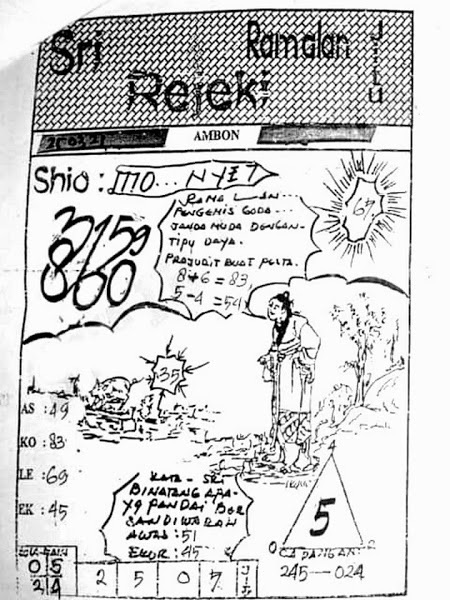 Sri
Ramalan
Rejeki
Jitu
AMBON
Shio : MO...NYET
3159
860
RAMALAN...
PENGEMIS GODA...
JANDA MUDA DENGAN-
TIPU DAYA.
PRAJURIT BUAT PESTA.
8+6=83,
5-4=54
35
AS : 49
KO : 83
LE : 69
EK : 45
KATA - SRI
BINATANG APA-
YG PANDAI BER
SANDIWARAH
AWAS : 51
EKOR : 45
5
0
2
CADANGAN
245-024
0 5
2 4
2 5 0 7